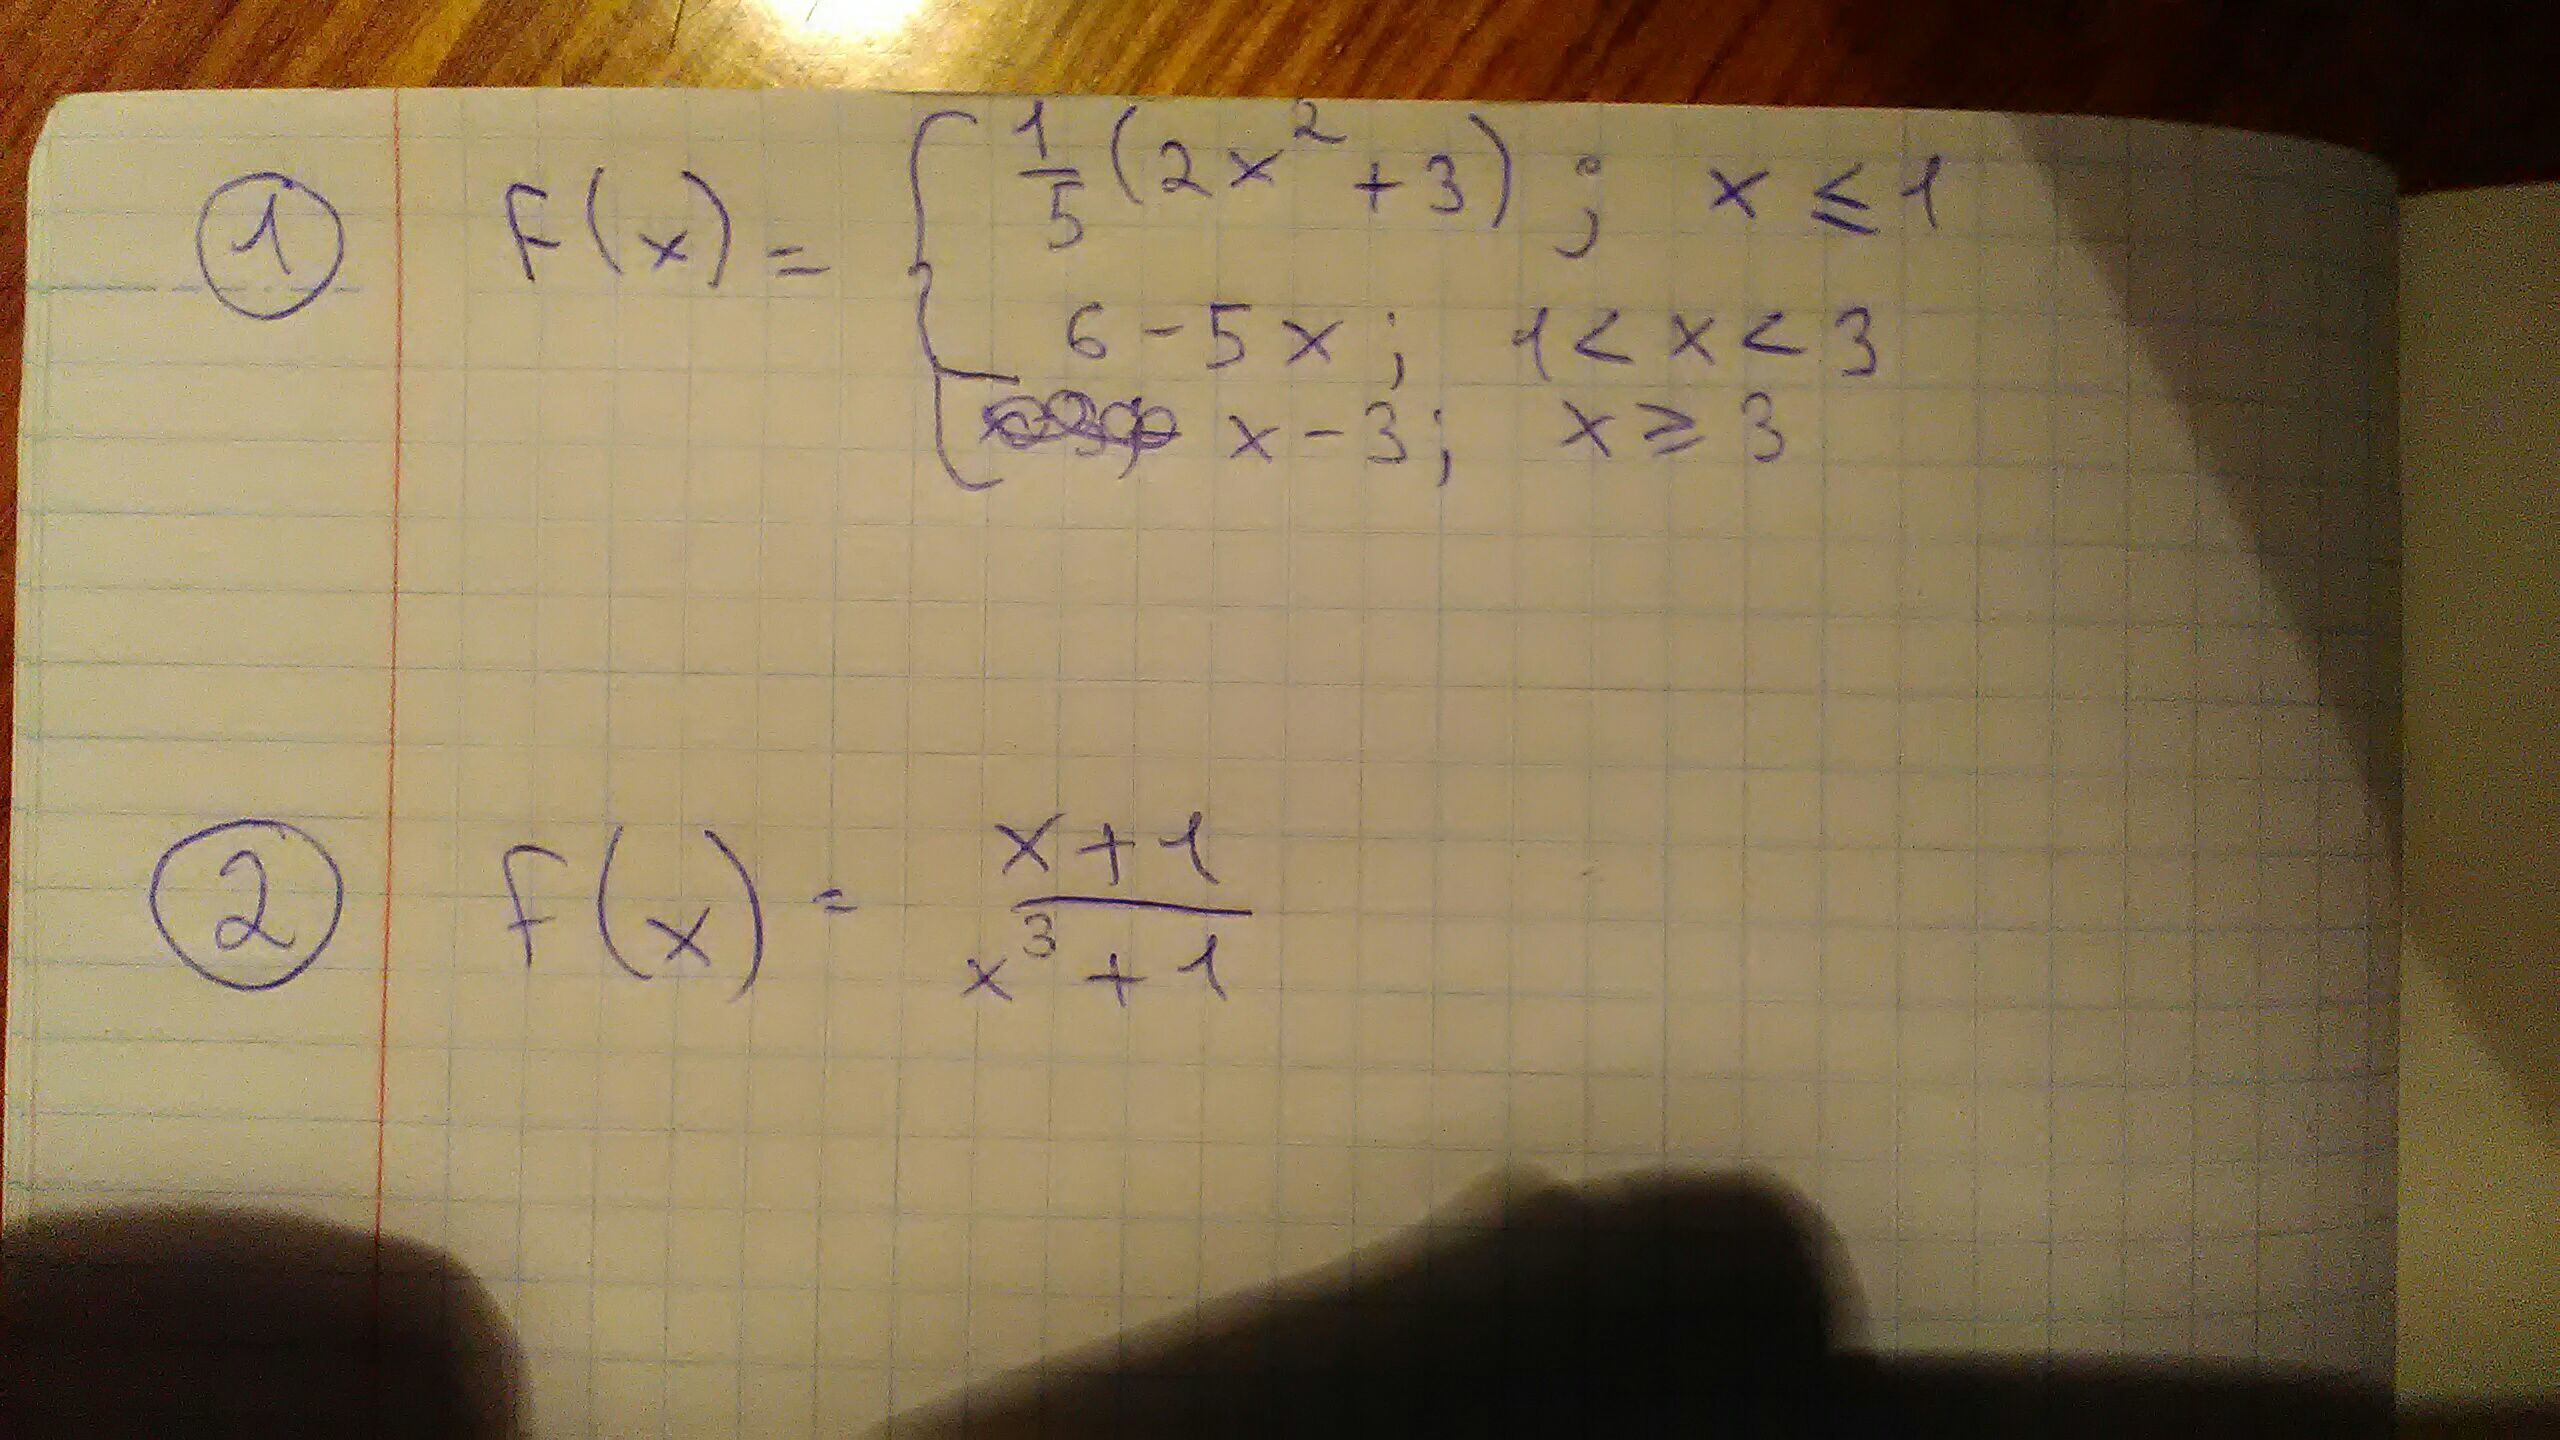 ① F(x) = { 1/5 (2x² + 3); x ≤ 1
6 - 5x; 1 < x < 3
x - 3; x ≥ 3
② F(x) = (x + 1)/(x³ + 1)